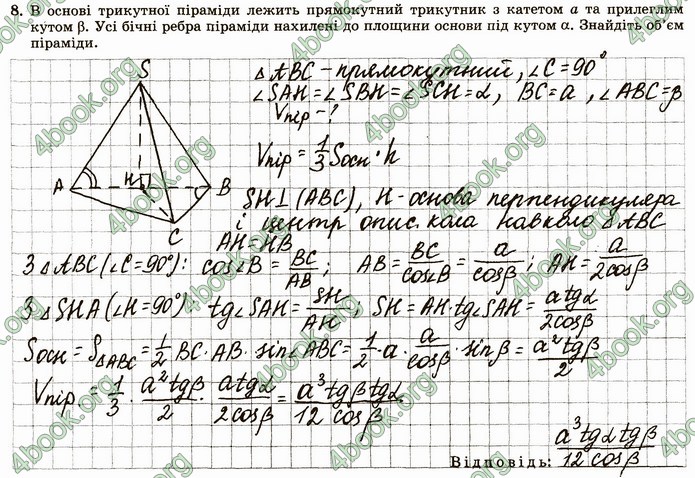 8. В основі трикутної піраміди лежить прямокутний трикутник з катетом a та прилеглим
кутом β. Усі бічні ребра піраміди нахилені до площини основи під кутом α. Знайдіть об'єм
піраміди.
△ABC – прямокутний, ∠C=90°
∠SAH=∠SBH=∠SCH=α, BC=a, ∠ABC=β
Vпір – ?
Vпір = 1/3 Sосн · h
S
A
H
B
C
SH⊥(ABC), H – основа перпендикуляра
і центр опис. кола навколо △ABC
AH=HB
З △ABC(∠C=90°): cos∠B = BC/AB; AB = BC/cos∠B = a/cosβ; AH = a/2cosβ
З △SHA(∠H=90°): tg∠SAH = SH/AH; SH = AH·tg∠SAH = atgα/2cosβ
Sосн = S△ABC = 1/2 BC·AB·sin∠ABC = 1/2·a·a/cosβ·sinβ = a²tgβ/2
Vпір. = 1/3 · a²tgβ/2 · atgα/2cosβ = a³tgβtgα/12cosβ
Відповідь: a³tgαtgβ/12cosβ
4book.org